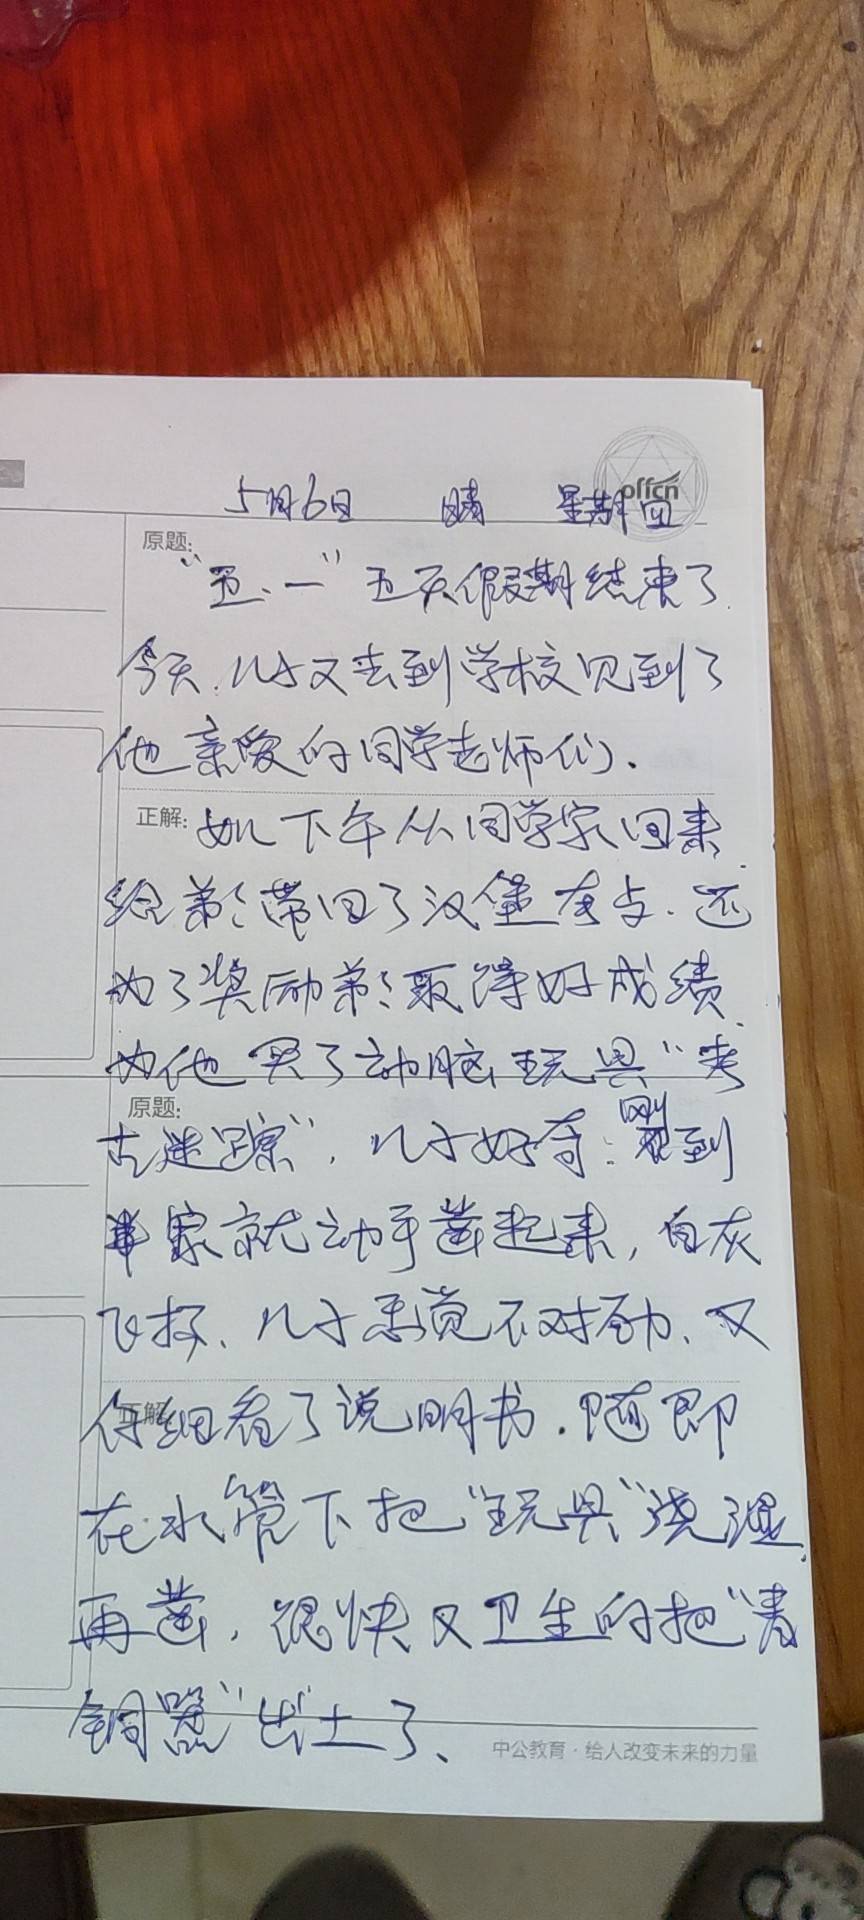 offcn
5月6日 晴 星期四
原题:
“五、一”五天假期结束了
今天,儿子又去到学校见到了
他亲爱的同学老师们、
正解:
下午从同学家回来
给弟弟带回了汉堡
还
为了奖励弟弟取得好成绩
为他买了动脑玩具“考
原题:
古迷踪”,儿子好奇:刚到
家就动手凿起来,白灰
飞扬、儿子感觉不对劲、又
正解:
仔细看了说明书.随即
在水管下把“玩具”浇湿、
再凿,很快又卫生的把“青
铜器”出土了、
中公教育·给人改变未来的力量